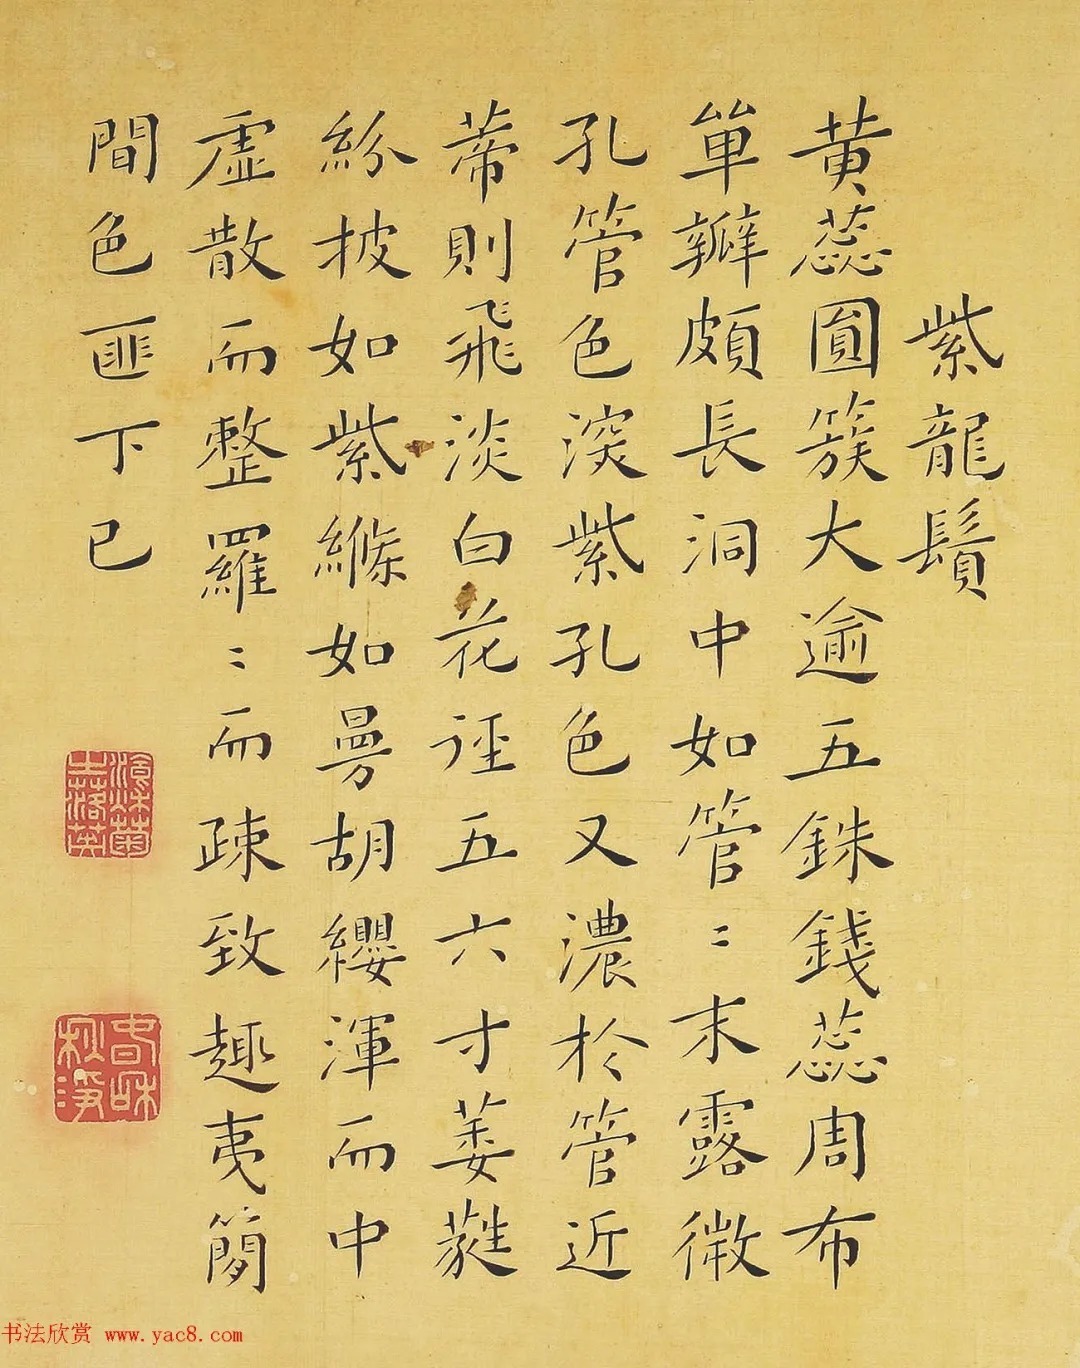 紫龍鬚
黄蕊圓簇大逾五銖錢蕊周布
單瓣頗長洞中如管〻末露微
孔管色深紫孔色又濃於管近
蒂則飛淡白花徑五六寸萎蕤
紛披如紫縧如曼胡纓渾而中
虛散而整羅〻而疎致趣夷簡
間色匪下已
书法欣赏 www.yac8.com